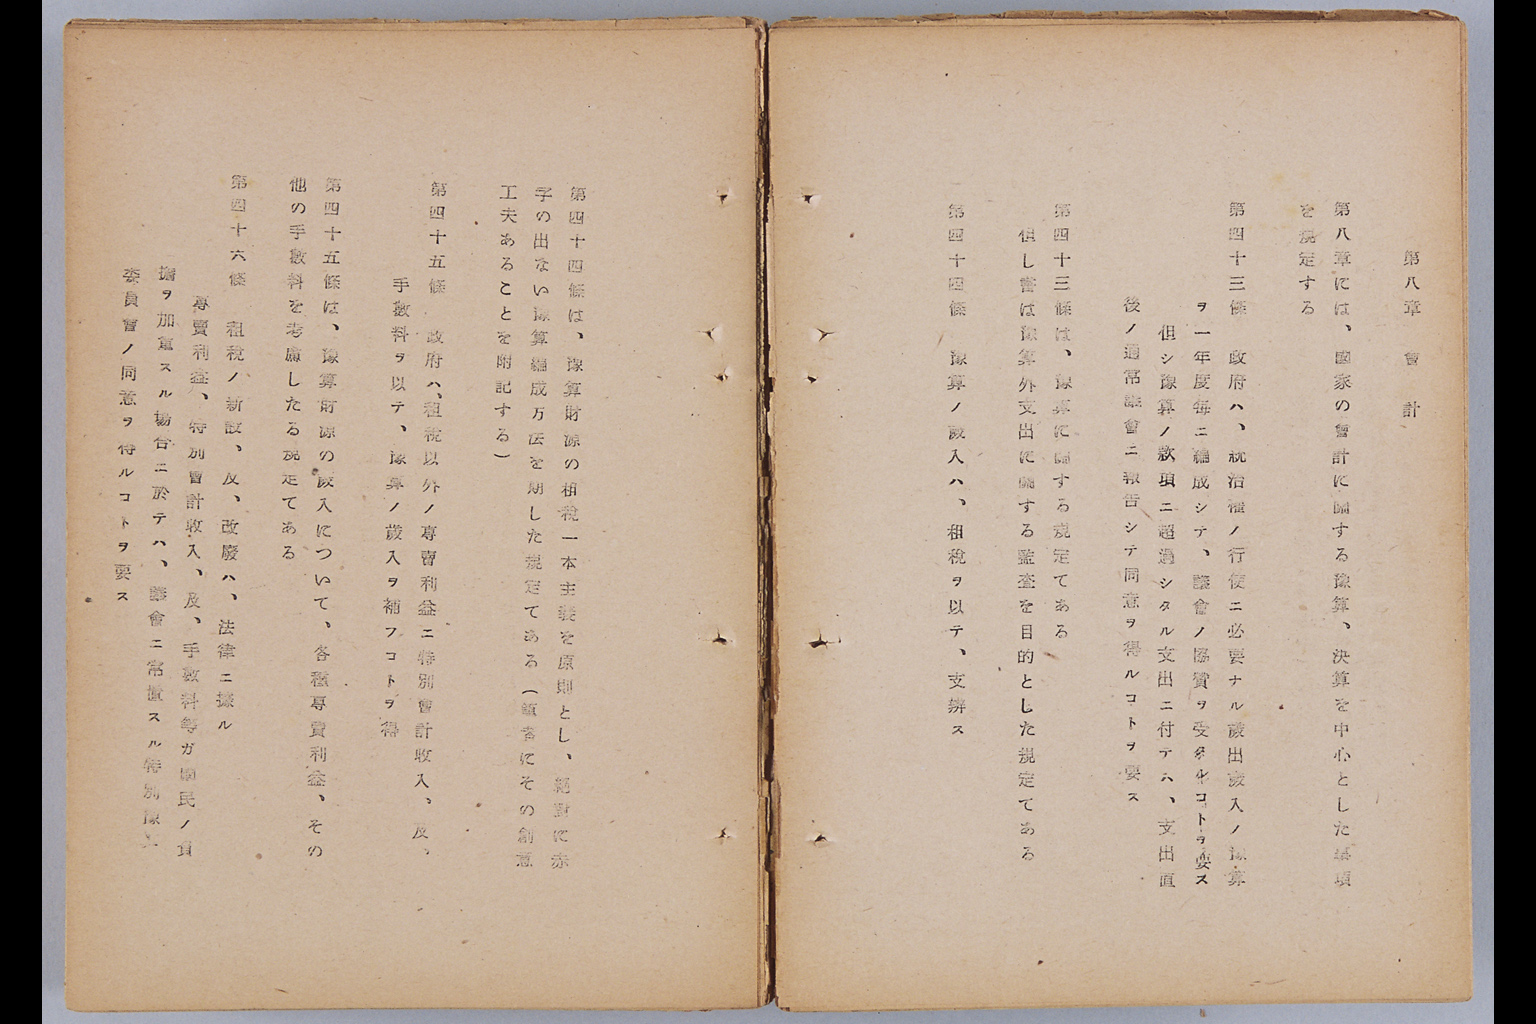 第八章　會　計
第八章には、國家の會計に關する豫算、決算を中心とした事項
を規定する
第四十三條　政府ハ、統治權ノ行使ニ必要ナル歲出歲入ノ豫算
ヲ一年度每ニ編成シテ、議會ノ協賛ヲ受クルコトヲ要ス
但シ豫算ノ款項ニ超過シタル支出ニ付テハ、支出直
後ノ通常議會ニ報告シテ同意ヲ得ルコトヲ要ス
第四十三條は、豫算に關する規定てある
但し書は豫算外支出に關する監査を目的とした規定てある
第四十四條　豫算ノ歲入ハ、租稅ヲ以テ、支辨ス
第四十四條は、豫算財源の租稅一本主義を原則とし、絕對に赤
字の出ない豫算編成方法を期した規定てある（筆者にその創意
工夫あることを附記する）
第四十五條　政府ハ、租稅以外ノ專賣利益ニ特別會計收入、及、
手數料ヲ以テ、豫算ノ歲入ヲ補フコトヲ得
第四十五條は、豫算財源の歲入について、各種專賣利益、その
他の手數料を考慮したる規定てある
第四十六條　租稅ノ新設、及、改廢ハ、法律ニ據ル
專賣利益、特別會計收入、及、手數料等ガ國民ノ負
擔ヲ加重スル場合ニ於テハ、議會ニ常置スル特別豫算
委員會ノ同意ヲ得ルコトヲ要ス